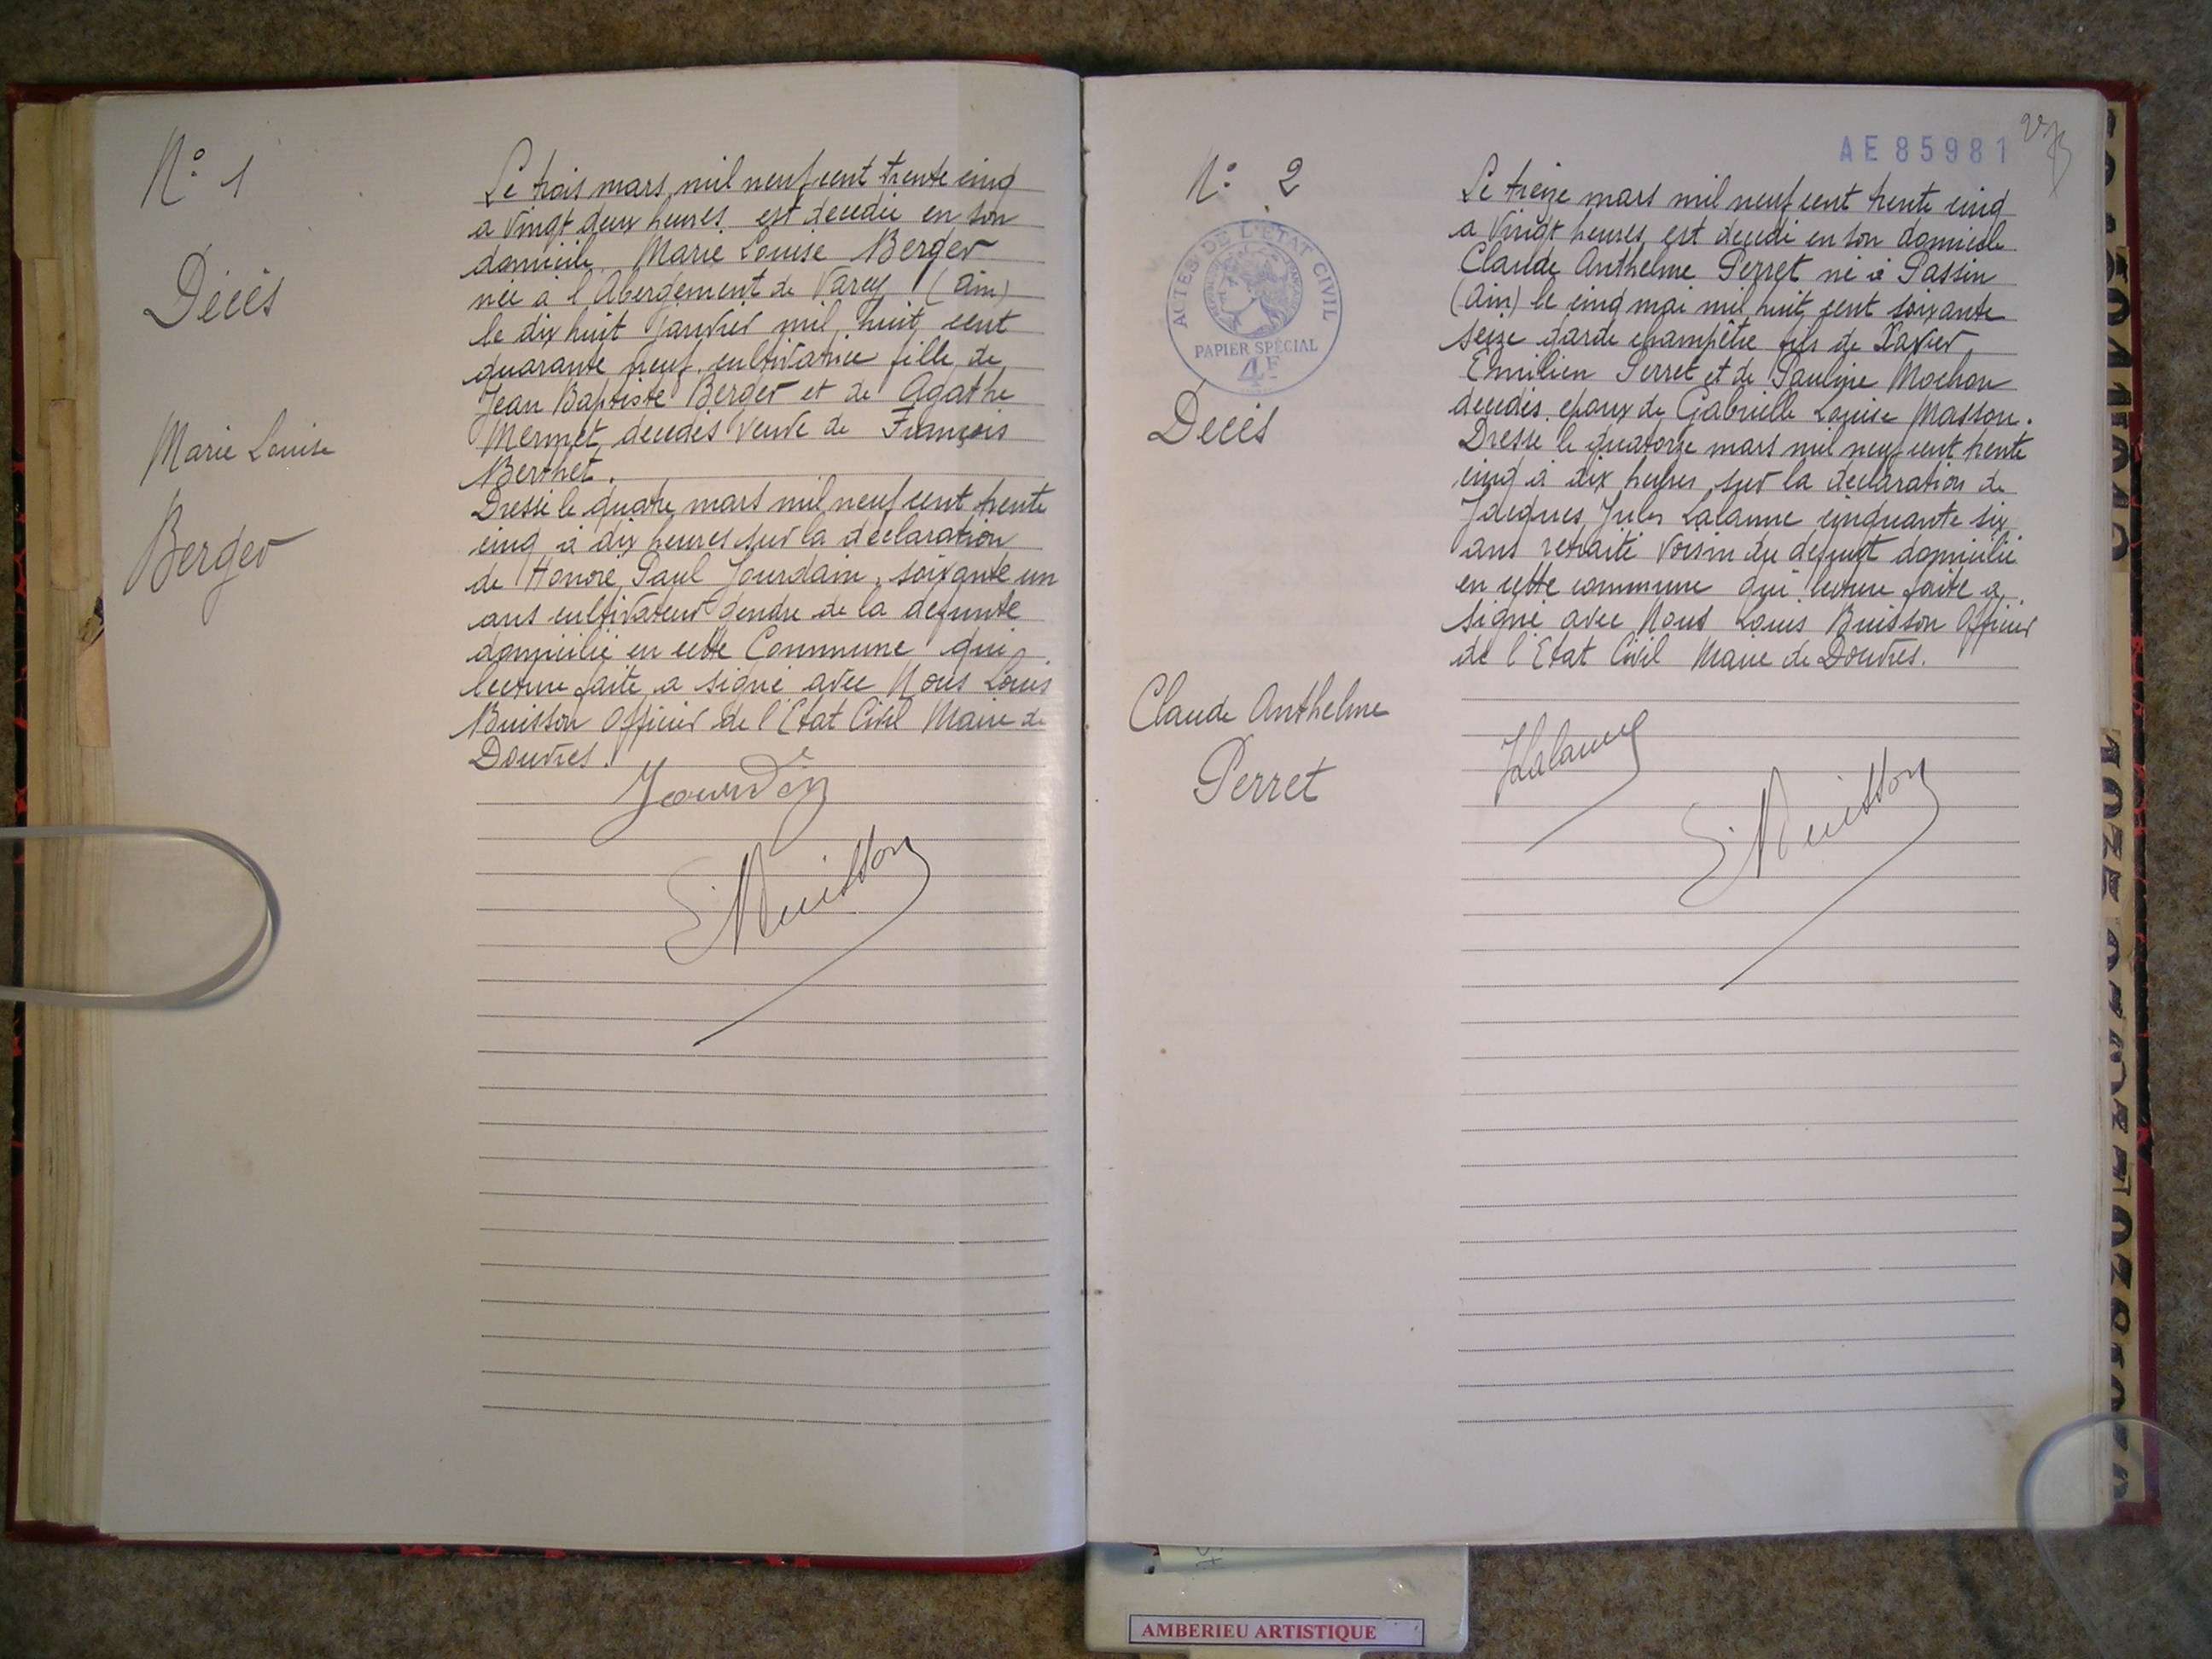 N° 1
Décès
Marie Louise
Berger
Le trois mars mil neuf cent trente cinq
a vingt deux heures est decedée en son
domicile Marie Louise Berger
née a l'Abergement de Varey (Ain)
le dix huit janvier mil huit cent
quarante neuf cultivatrice fille de
Jean Baptiste Berger et de Agathe
Mermet decedés veuve de François
Berthet.
Dressé le quatre mars mil neuf cent trente
cinq à dix heures sur la declaration
de Honoré Paul Jourdain, soixante un
ans cultivateur gendre de la defunte
domicilié en cette Commune qui
lecture faite a signé avec Nous Louis
Buisson Officier de l'Etat Civil Maire de
Douvres.
Jourdain
L. Buisson
N° 2
ACTES DE L'ETAT CIVIL
PAPIER SPÉCIAL
4F
Décès
Claude Anthelme
Perret
AE85981
Le treize mars mil neuf cent trente cinq
a vingt heures est decedé en son domicile
Claude Anthelme Perret né à Passin
(Ain) le cinq mai mil huit cent soixante
seize garde champêtre fils de Xavier
Emilien Perret et de Pauline Mochon
decedés epoux de Gabrielle Louise Masson.
Dressé le quatorze mars mil neuf cent trente
cinq à dix heures sur la declaration de
Jacques Jules Lalanne cinquante six
ans retraité voisin du defunt domicilié
en cette commune qui lecture faite a
signé avec Nous Louis Buisson Officier
de l'Etat Civil Maire de Douvres.
JLalanne
L. Buisson
AMBERIEU ARTISTIQUE